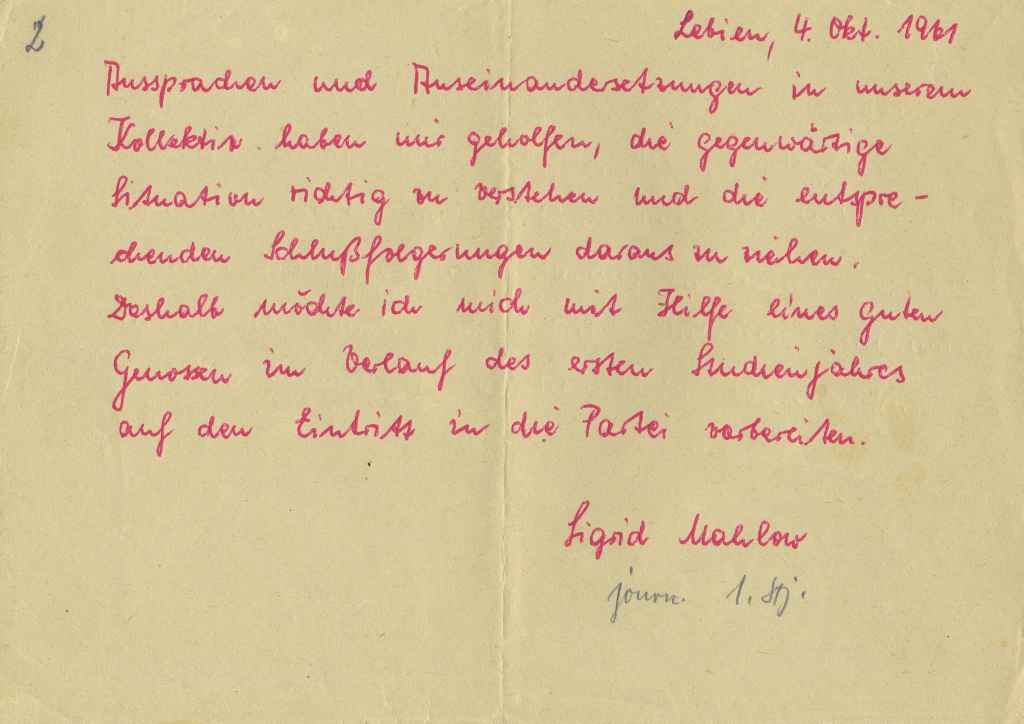 2
Lebien, 4. Okt. 1961
Aussprachen und Auseinandersetzungen in unserem
Kollektiv haben mir geholfen, die gegenwärtige
Situation richtig zu verstehen und die entspre-
chenden Schlußfolgerungen daraus zu ziehen.
Deshalb möchte ich mich mit Hilfe eines guten
Genossen im Verlauf des ersten Studienjahres
auf den Eintritt in die Partei vorbereiten.
Sigrid Mahlow
journ. 1. Stj.